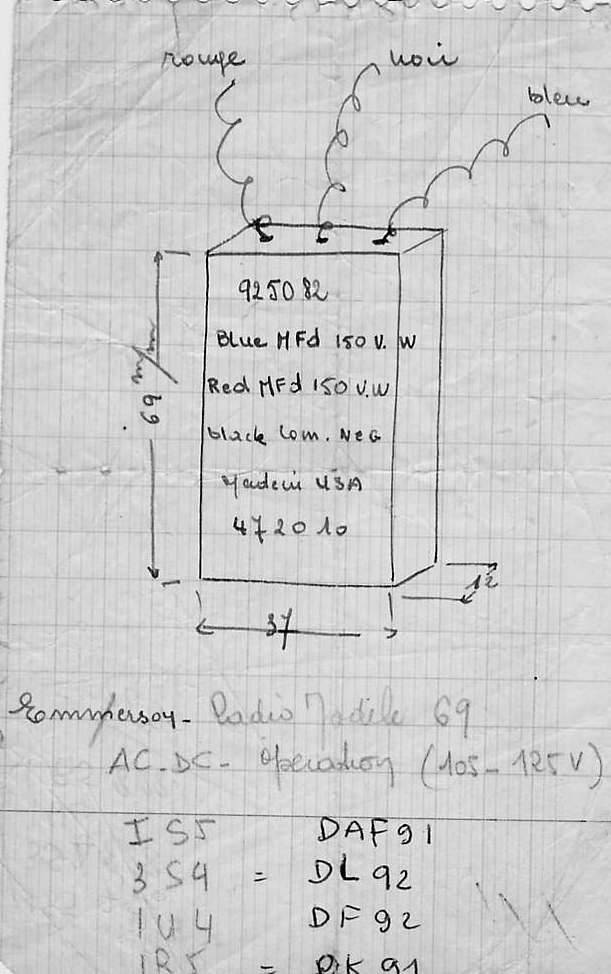 rouge noir bleu
925082
Blue MFd 150 V. W
Red MFd 150 V.W
black Com. NeG
Made in USA
472010
69 m/m
12
37
Emmerson - Radio Modèle 69
AC. DC - Operation (105 - 125 V)
IS5 DAF91
3S4 = DL92
1U4 DF92
1R5 = DK91